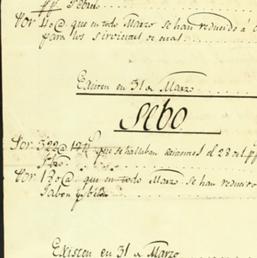 pp.º Febrº
Por 40@ que en todo Marzo se han reducido á
para los sirvientes
Existen en 31 de Marzo
Sebo
Por 322@ 12 que se hallaban existentes el 28 del pp
Por 130@ que en todo Marzo se han reducido
Jabon
Existen en 31 de Marzo